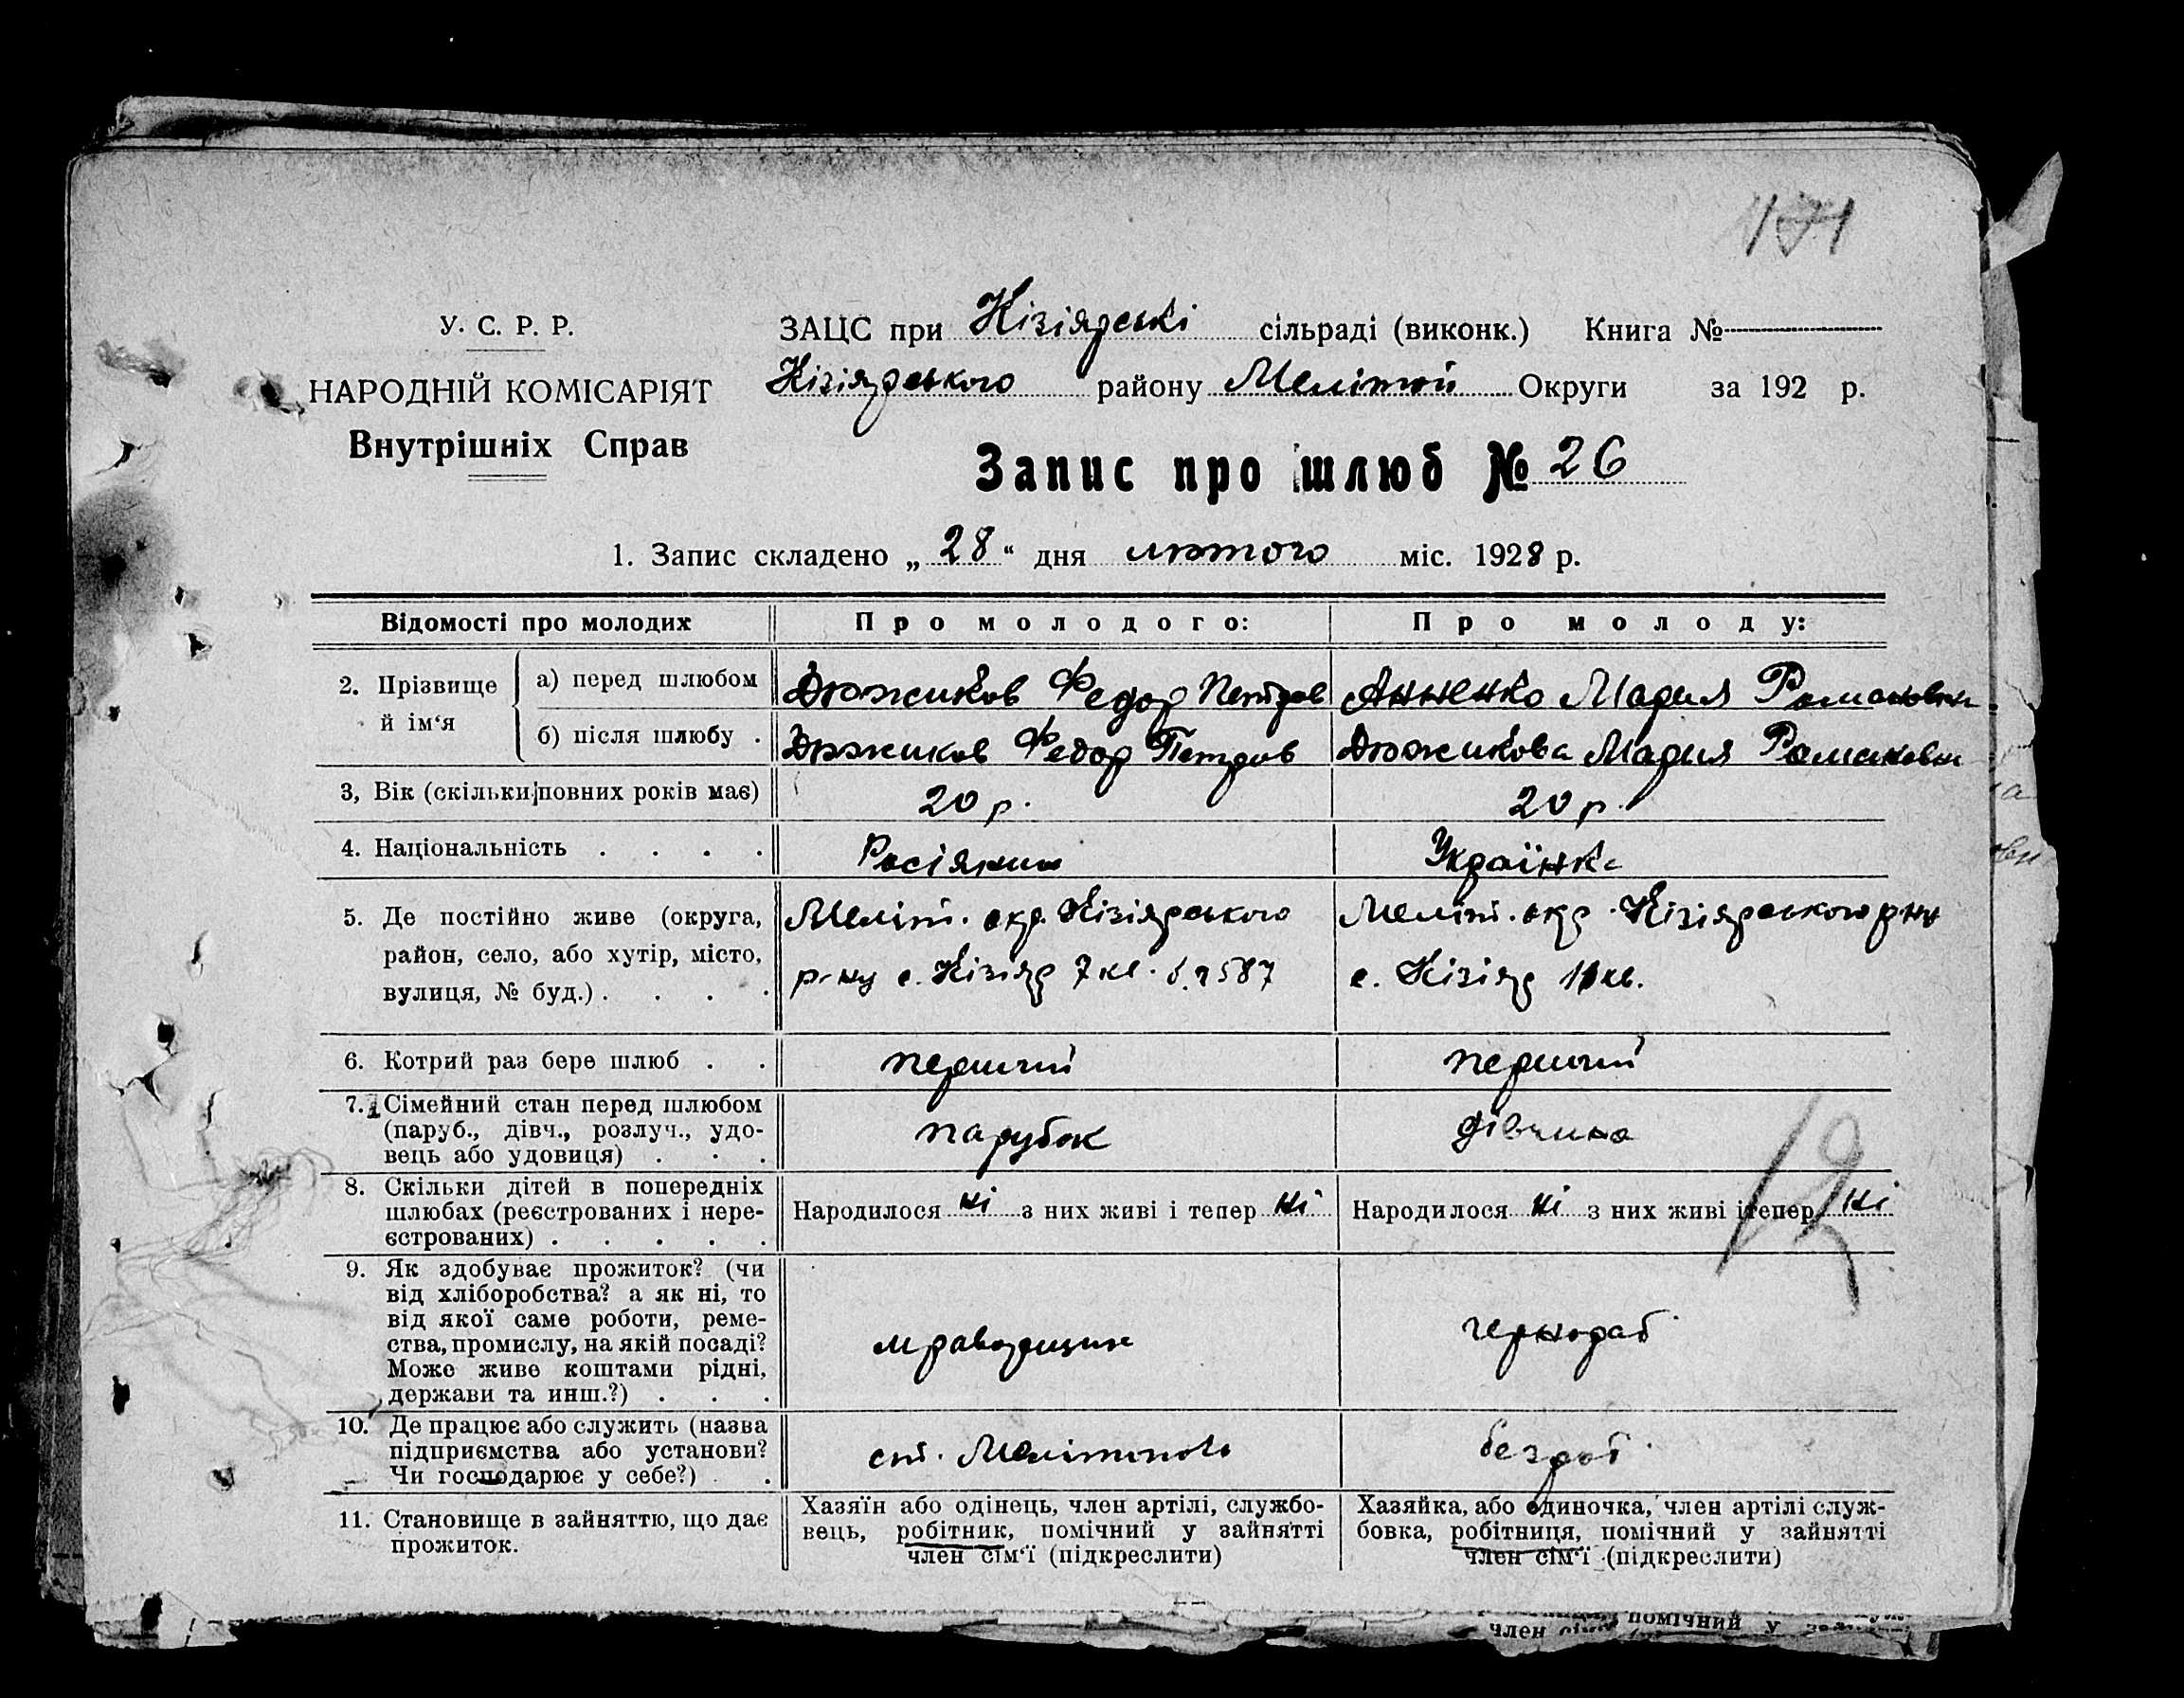 171
У. С. Р. Р.
НАРОДНІЙ КОМІСАРІЯТ
Внутрішніх Справ
ЗАЦС при Кізіярські сільраді (виконк.) Книга №
Кізіярського району Мелітой Округи за 192 р.
Запис про шлюб № 26
1. Запис складено „28“ дня лютого міс. 1928 р.
Відомості про молодих
Про молодого:
Про молоду:
2. Прізвище й ім‘я
а) перед шлюбом
Дюжиков Федор Петров
Анненко Мария Романовна
б) після шлюбу .
Дюжиков Федор Петров
Дюжикова Мария Романовна
3, Вік (скільки повних років має)
20 р.
20 р.
4. Національність . . . .
Росіянин
Українка
5. Де постійно живе (округа,
район, село, або хутір, місто,
вулиця, № буд.) . . . .
Меліт. окр. Кізіярського
р-ну с. Кізіяр 7 кв. 587
Меліт. окр. Кізіярського р-ну
с. Кізіяр 11 кв.
6. Котрий раз бере шлюб . .
перший
перший
7. Сімейний стан перед шлюбом
(паруб., дівч., розлуч., удо-
вець або удовиця) . . .
парубок
дівчина
8. Скільки дітей в попередніх
шлюбах (реєстрованих і нере-
єстрованих) . . . . .
Народилося ні з них живі і тепер ні
Народилося ні з них живі і тепер ні
12
9. Як здобуває прожиток? (чи
від хліборобства? а як ні, то
від якої саме роботи, реме-
ства, промислу, на якій посаді?
Може живе коштами рідні,
держави та инш.?) . . .
чернораб
10. Де працює або служить (назва
підприємства або установи?
Чи господарює у себе?) . .
ст. Мелітополь
безроб.
11. Становище в зайняттю, що дає
прожиток.
Хазяїн або одінець, член артілі, службо-
вець, робітник, помічний у зайнятті
член сім‘ї (підкреслити)
Хазяйка, або одиночка, член артілі служ-
бовка, робітниця, помічний у зайнятті
член сім‘ї (підкреслити)
помічний у
член